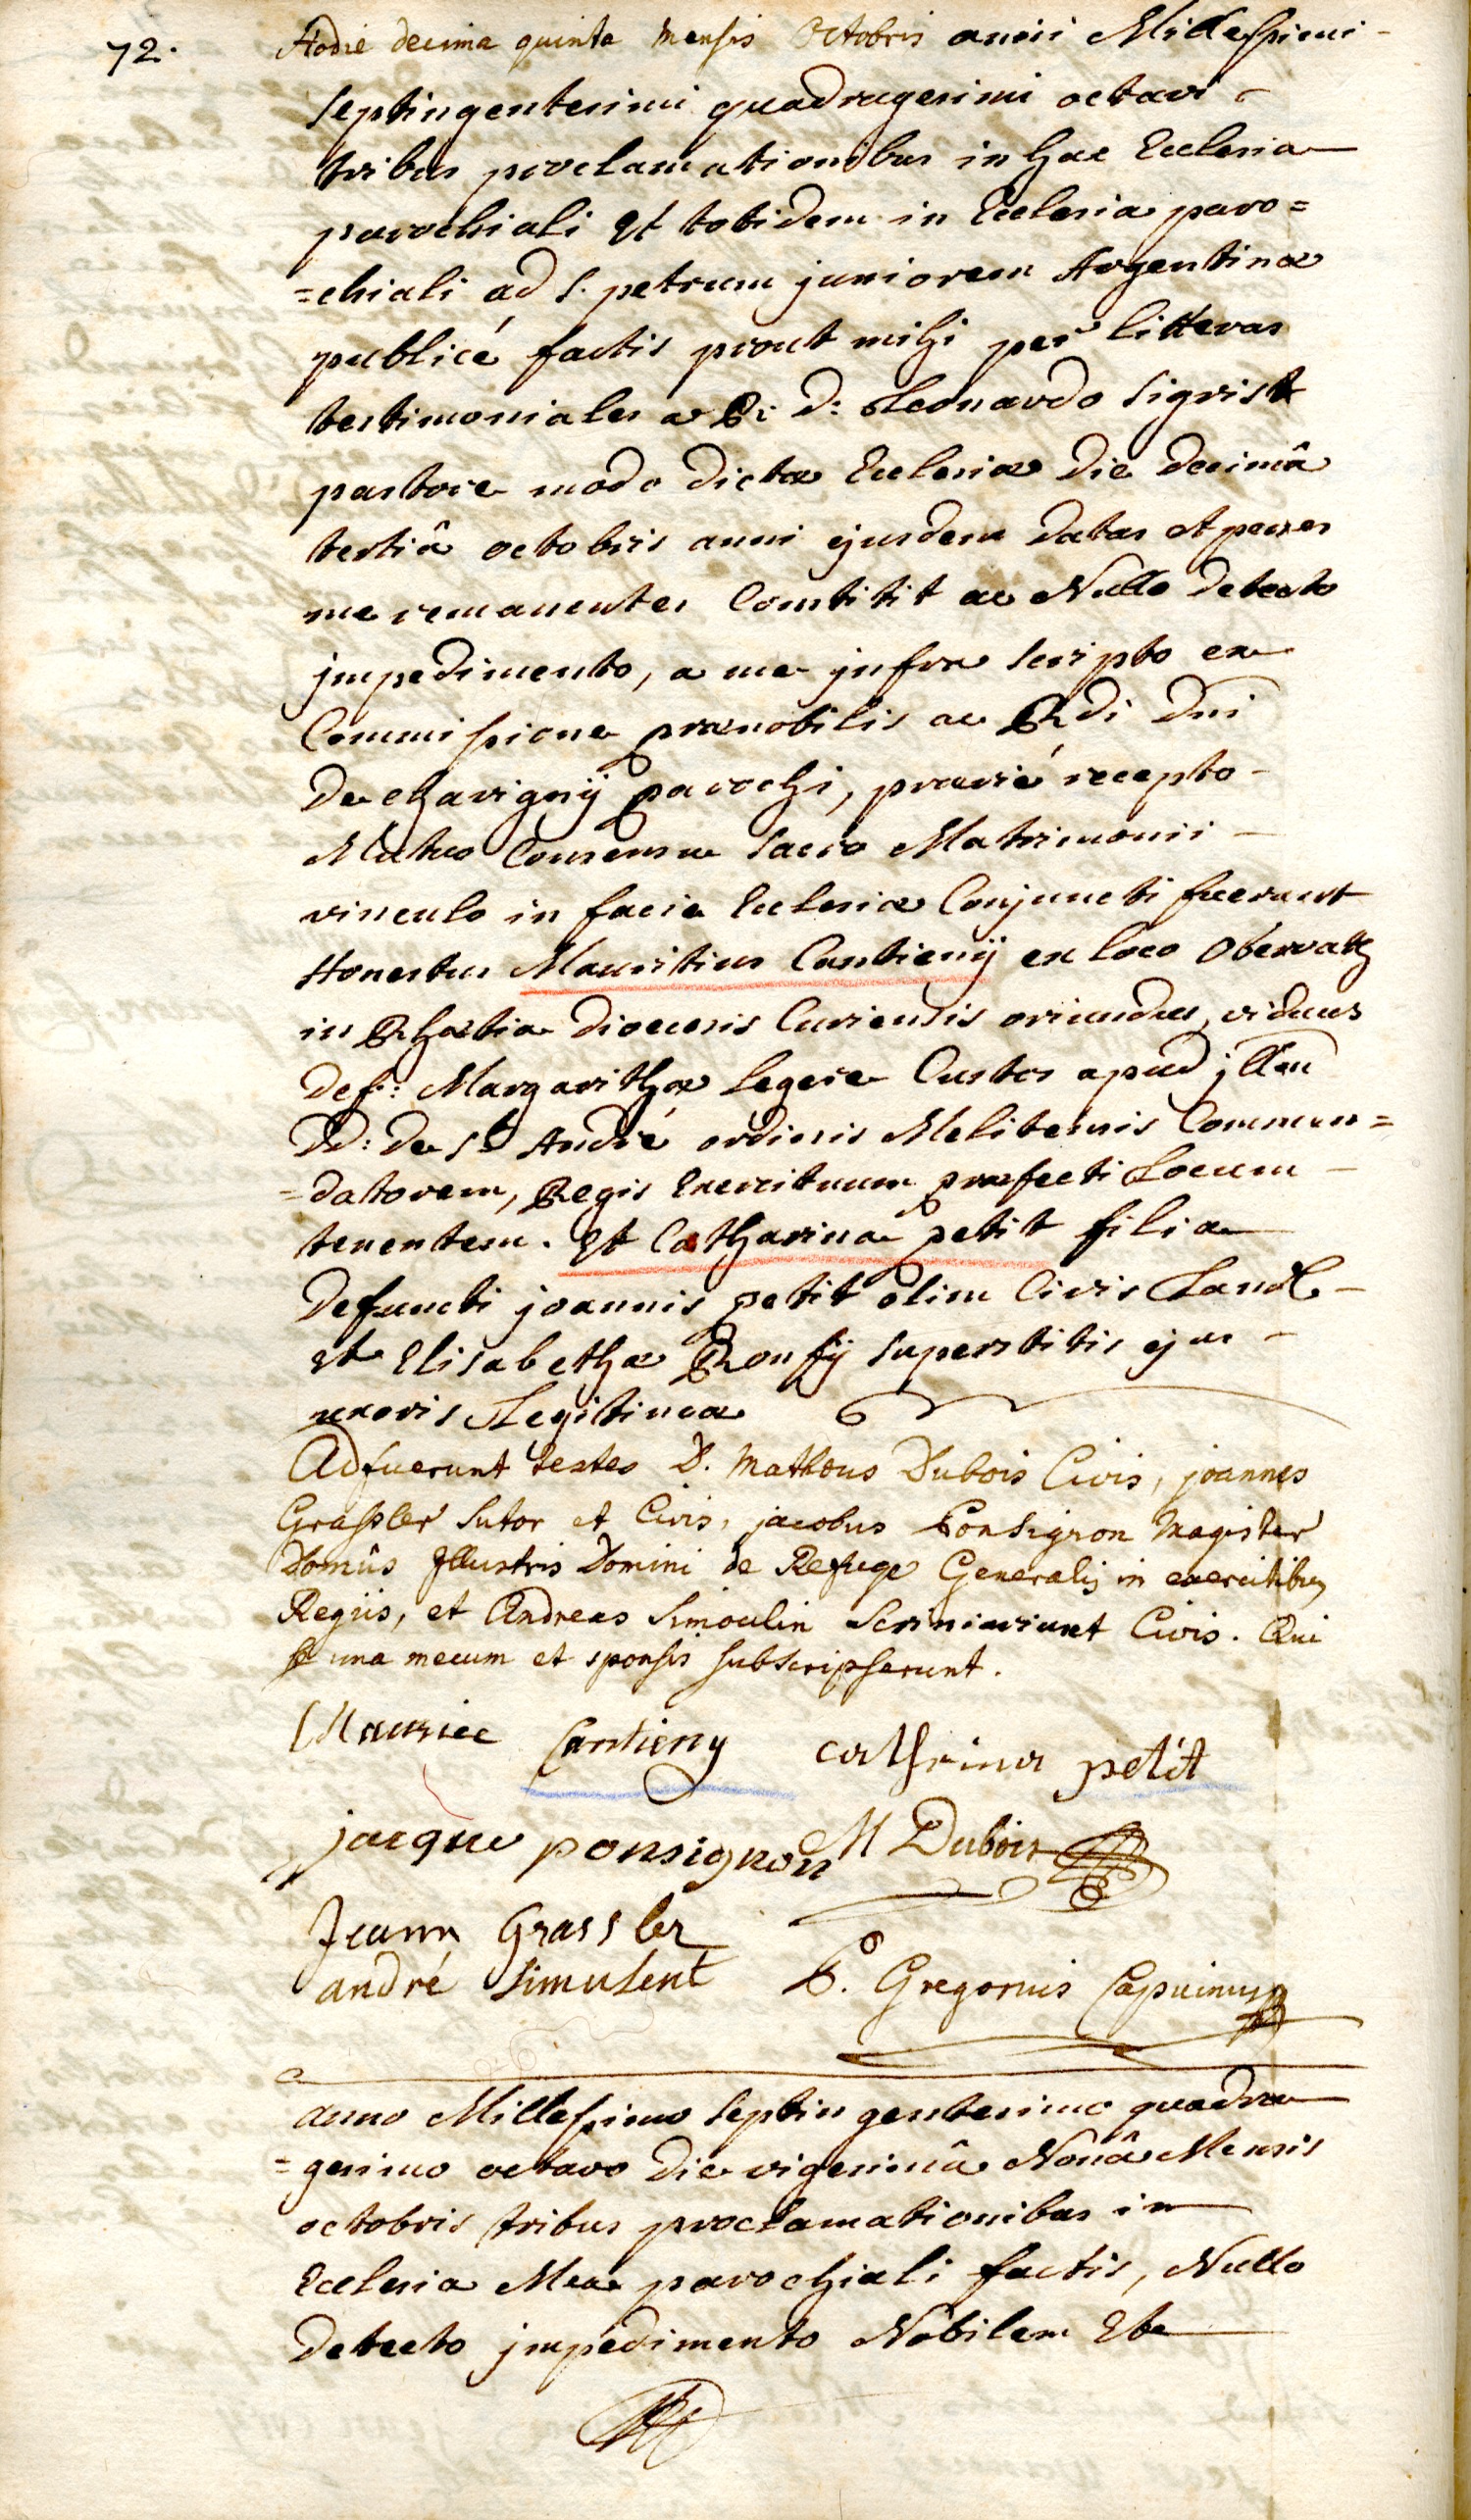 72.
Hodie decima quinta mensis Octobris anni Millesimi
septingentesimi quadragesimi octavi
tribus proclamationibus in hac Ecclesia
parochiali et totidem in Ecclesia paro=
=chiali ad S. petrum juniorem Argentinæ
publicé factis prout mihi per litteras
testimoniales a R: D: Leonardo Sigrist
pastore modo dictæ Ecclesiæ die decimâ
tertiâ octobris anni ejusdem datas et penes
me remanentes Constitit ac Nullo detecto
jmpedimento, a me jnfra scripto ex
Commissione prænobilis ac Rdi Dni
de chavignÿ parochi, prævié recepto
Mutuo Consensu sacro Matrimonii
vinculo in facie Ecclesiæ Conjuncti fuerunt
Honestus Mauritius Cantienÿ ex loco Obervatz
in Rhætia diœcesis Curiensis oriundus, viduus
def: Margarithæ Legere Custos apud jllm
DD: de St André ordinis Melitensis Commen=
=datorem, Regis Exercituum præfecti Locum
tenentem. Et Catharina petit filia
defuncti joannis petit olim Civis Land:
et Elisabethæ Ronfÿ superstitis ejus
uxoris Legitimæ
Adfuerunt testes D. Mathæus Dubois Civis, joannes
Grassler Sutor et Civis, jacobus Ponsignon Magister
Domûs Jllustris Domini de Refuge Generalis in exercitibus
Regiis, et Andreas Simoulin Scriniarius et Civis. Qui
una mecum et sponsis subscripserunt.
Maurice Cantieny catherina petit
jacque ponsignon M Dubois
Jeann Grassler
andré Simulent P. Gregorius Capucinus
anno Millesimo septingentesimo quadra
=gesimo octavo die vigesimâ Nonâ Mensis
octobris tribus proclamationibus in
Ecclesia Mea parochiali factis, Nullo
detecto jmpedimento Nobilem Et